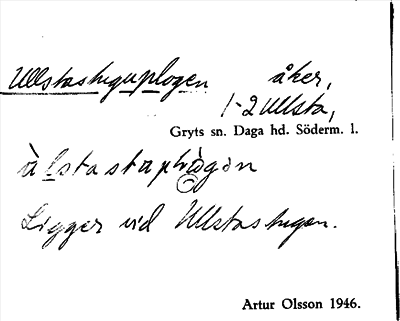 Ullstastuguplogen åker,
1-2 Ullsta,
Gryts sn. Daga hd. Söderm. l.
Ligger vid Ullstastugan.
Artur Olsson 1946.